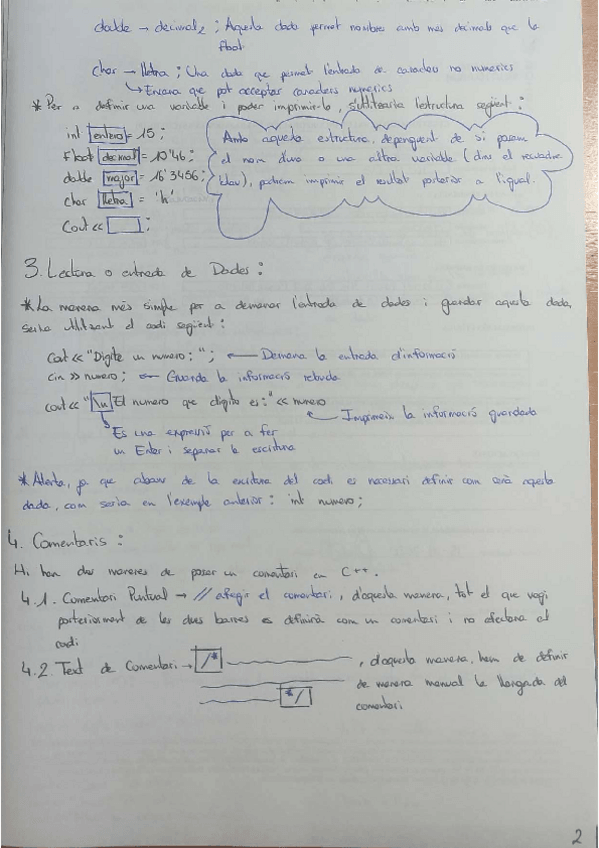 doble → decimal2 ; Aquesta dada permet nombres amb més decimals que le
float.
char → lletra ; Una dada que permet l'entrada de caracters no numerics
↳ Encara que pot acceptar caracters numerics
* Per a definir una variable i poder imprimir-la, s'utilitzaria l'estructura següent :
int entero = 15 ;
float decimal = 10'46 ;
doble major = 16'3456 ;
char lletra = 'h'
Cout << ;
Amb aquesta estructura, depenguent de si posem
el nom d'uno o una altra variable ( dins el recuadre
blau), podrem imprimir el resultat posterior a l'igual.
3. Lectura o entrada de Dades :
* La manera més simple per a demanar l'entrada de dades i guardar aquesta dada,
seria utilitzant el codi següent :
Cout << "Digite un numero : " ; ← Demana la entrada d'informació
cin >> numero ; ← Guarda la informació rebuda
cout << "\n El numero que digito es : " << numero
← Imprimeix la informació guardada
Es una expressió per a fer
un Enter i separar la escritura
* Alerta, ja que abans de la escritura del codi es necessari definir com serà aquesta
dada, com seria en l'exemple anterior : int numero ;
4. Comentaris :
Hi han dos maneres de posar un comentari en C++.
4.1. Comentari Puntual → // afegir el comentari , d'aquesta manera, tot el que vagi
posteriorment de les dues barres es definirà com un comentari i no efectara al
codi
4.2. Text de Comentari → /* , d'aquesta manera, hem de definir
de manera manual la llargada del
*/ comentari
2